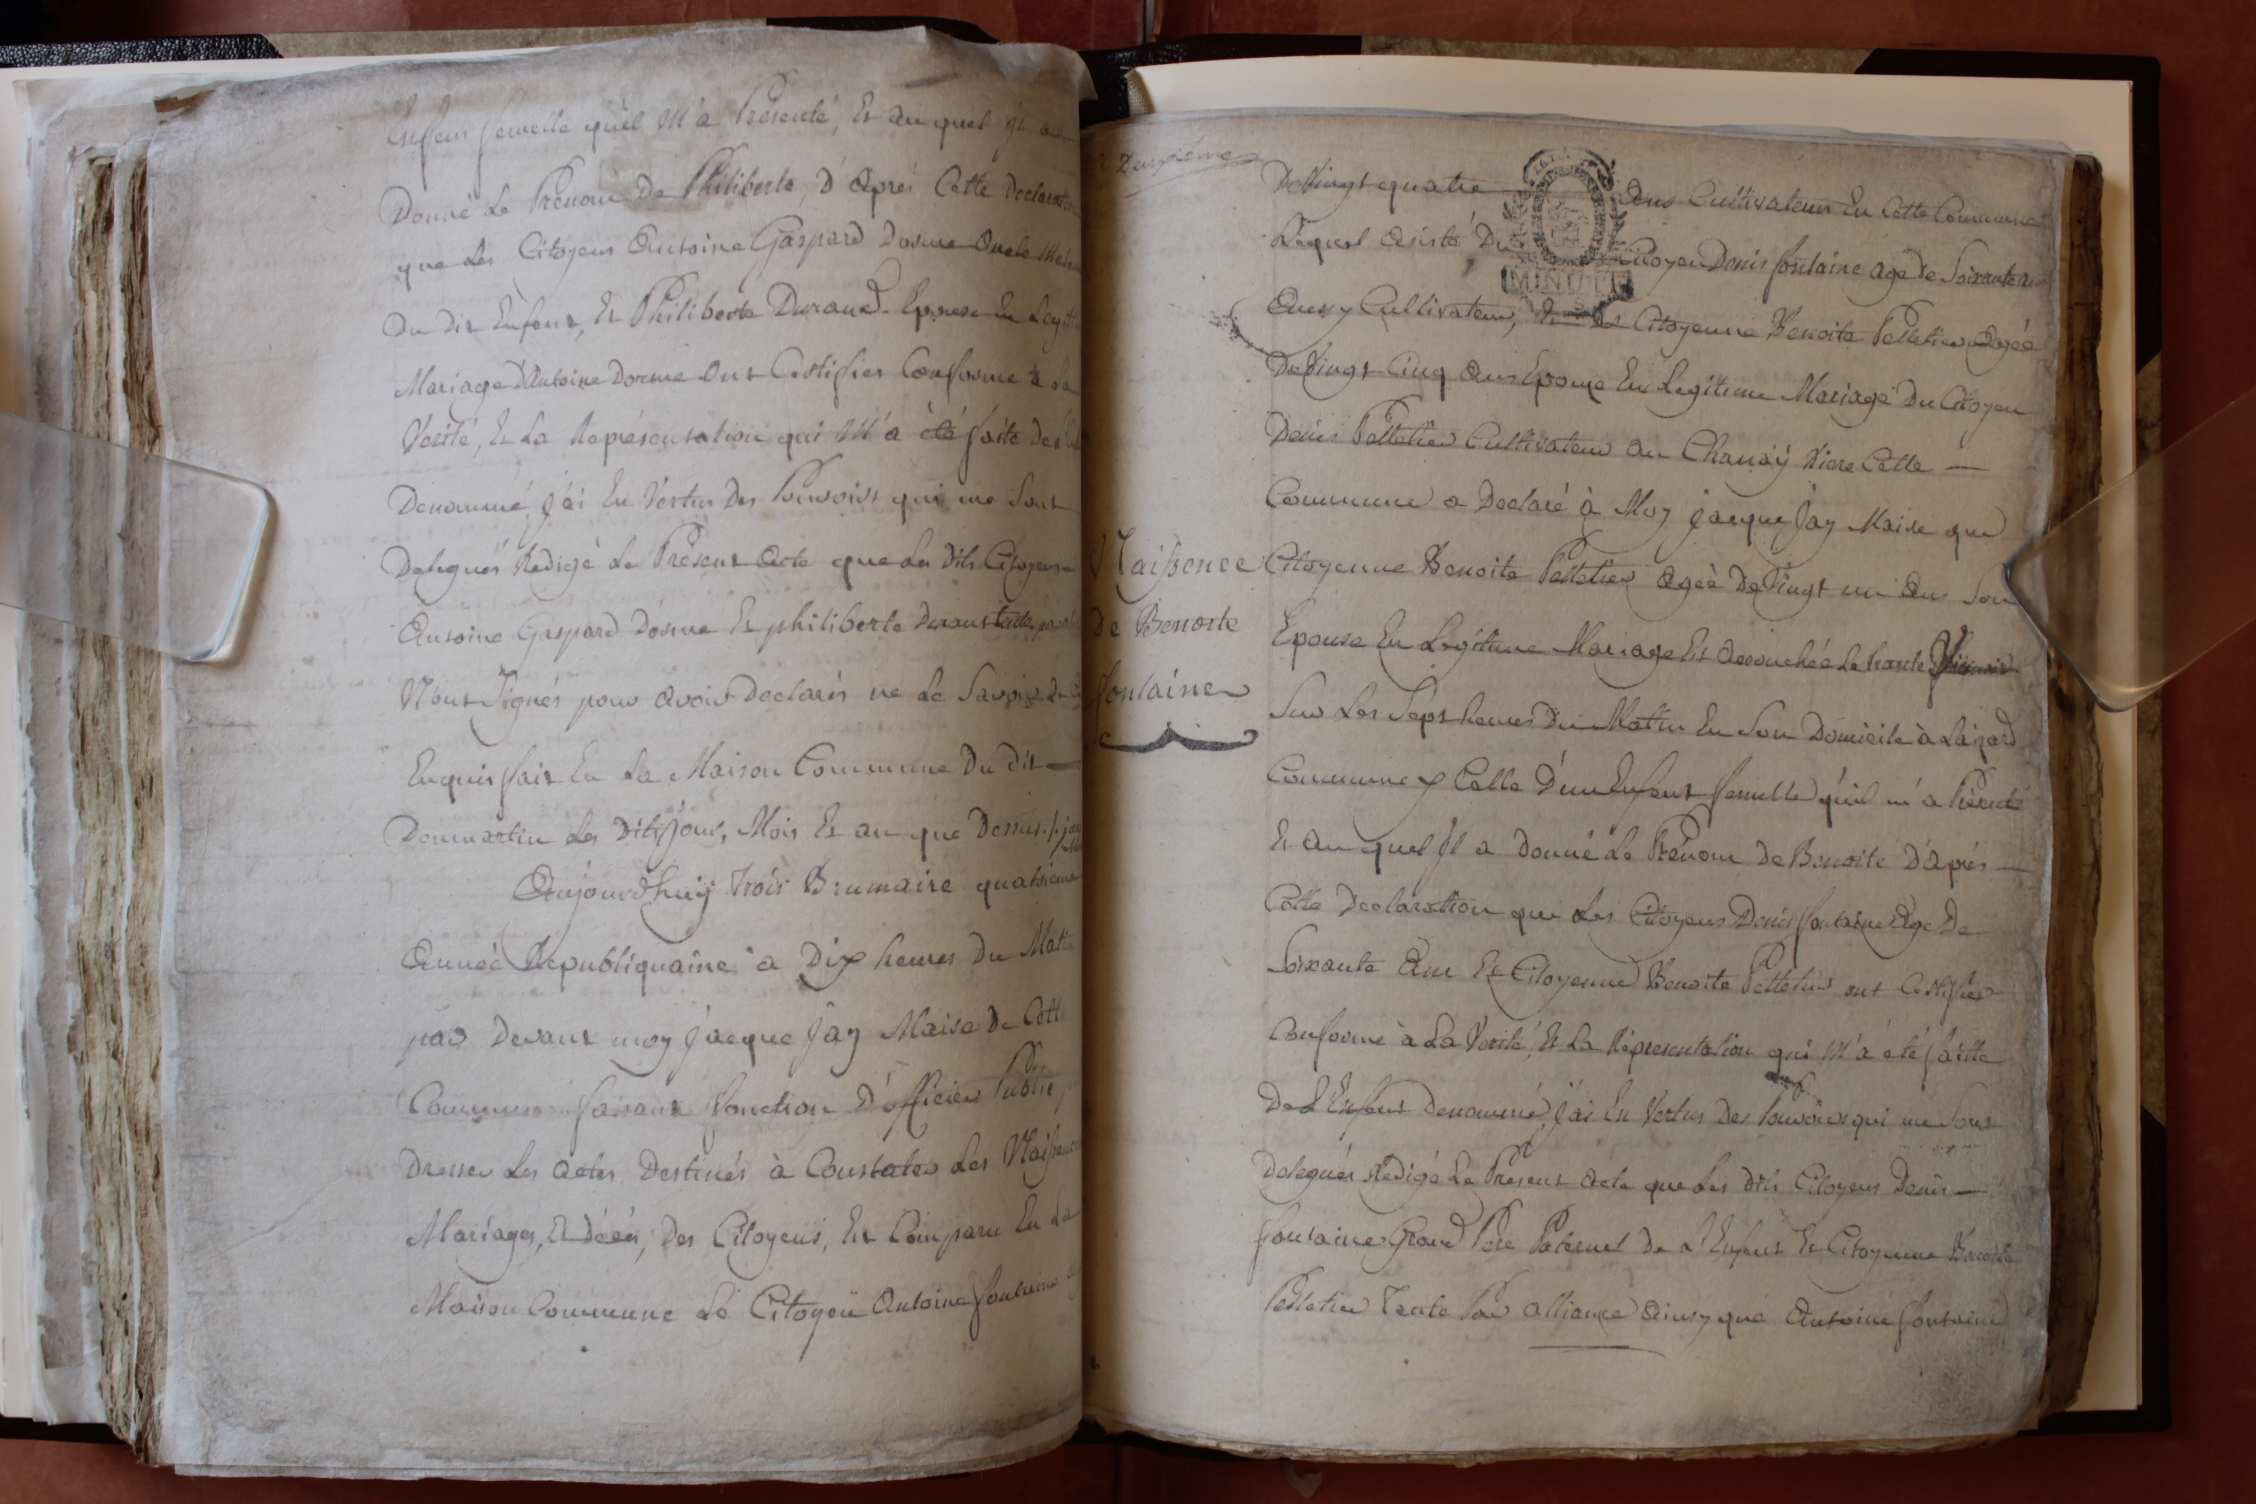 Enfans femelle qu'el M'a Présenté, Et au quel j'ai
Donné Le Prénom De Philiberte, D'Après Cette Declaration
que Les Citoyens Antoine Gaspard Dorme Oncle
Du Dit Enfant, Et Philiberte Durand Epouse En Legit
Mariage d'Antoine Dorme Ont Certifier Conforme à La
Verité, Et La Représentation qui M'a été faite De
Denommé, j'ai En Vertus Des Pouvoirs qui me Sont
Delegués Redigé Le Présent Acte que Les Dits Citoyens
Antoine Gaspard Dorme Et philiberte Durant tente
N'ont Signés pour avoir Declarés ne Le Savoir De
Enquis fait En La Maison Commune Du Dit
Dommartin Les Dits jour, Mois Et an que Dessus
Aujourd'huij Trois Brumaire quatrieme
Année Republiquaine a Dix heures Du Matin
par Devant moy jacque jay Maire De Cette
Commune faisant fonction D'officier Public
Dresser Les actes Destinés à Constater Les Naissences
Mariages, Et Décés, Des Citoyens, Est Comparu En La
Maison Commune Le Citoyen Antoine fontaine
Deuxieme
De Vingt quatre Ans Cultivateur En Cette Commune
Lequel Asisté Du Citoyen Denis fontaine age de Soixante
MINUTE
Aussy Cultivateur, Et La Citoyenne Benoite Pelletier Agée
De Vingt Cinq Ans Epouse En Legitime Mariage Du Citoyen
Denis Pelletier Cultivateur au Chanay Riere Cette
Commune a Declaré à Moy jacque jay Maire que
Naissence
De Benoite
fontaine
Citoyenne Benoite Pelletier Ageé De Vingt un Ans Son
Epouse En Legitime Mariage Est Accouchée Le trante
Sur Les Sept heures Du Matin En Son Domicile à
Commune Celle D'un Enfant femelle qu'il m'a Présenté
Et au quel Il a Donné Le Prénom De Benoite D'après
Cette Declaration que Les Citoyens Denis fontaine Age De
Soixante Ans Et Citoyenne Benoite Pelletier ont Certifier
Conforme à La Verité, Et La Répresentation qui M'a été faitte
De L'Enfant Denommé, j'ai En Vertus Des Pouvoirs qui me Sont
Delegués Redigé Le Present Acte que Les Dits Citoyens Denis
fontaine Grand Pere Paternel De L'Enfant Et Citoyenne Benoite
Pelletier Tente Par alliance Ainsy que Antoine fontaine